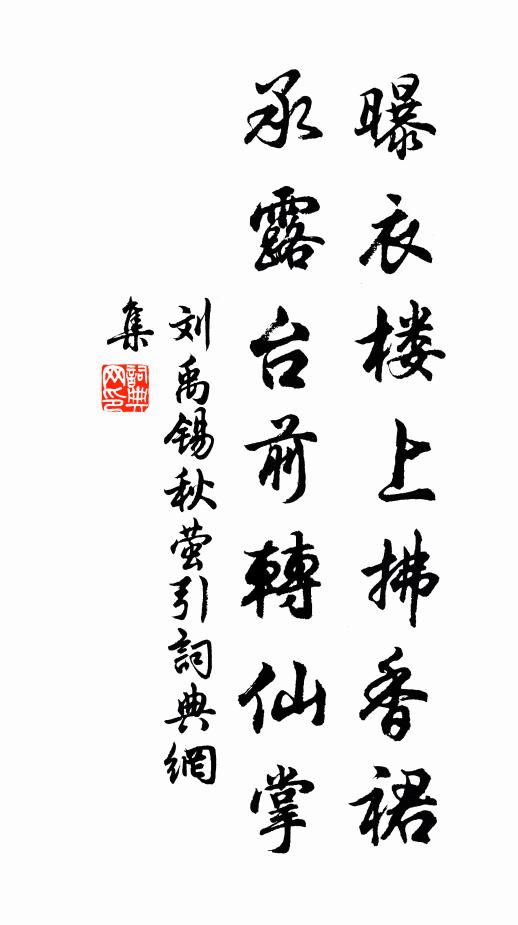 曝衣楼上拂香裙
承露台前轉仙掌
刘禹锡秋萤引詞典網
集
詞典网印